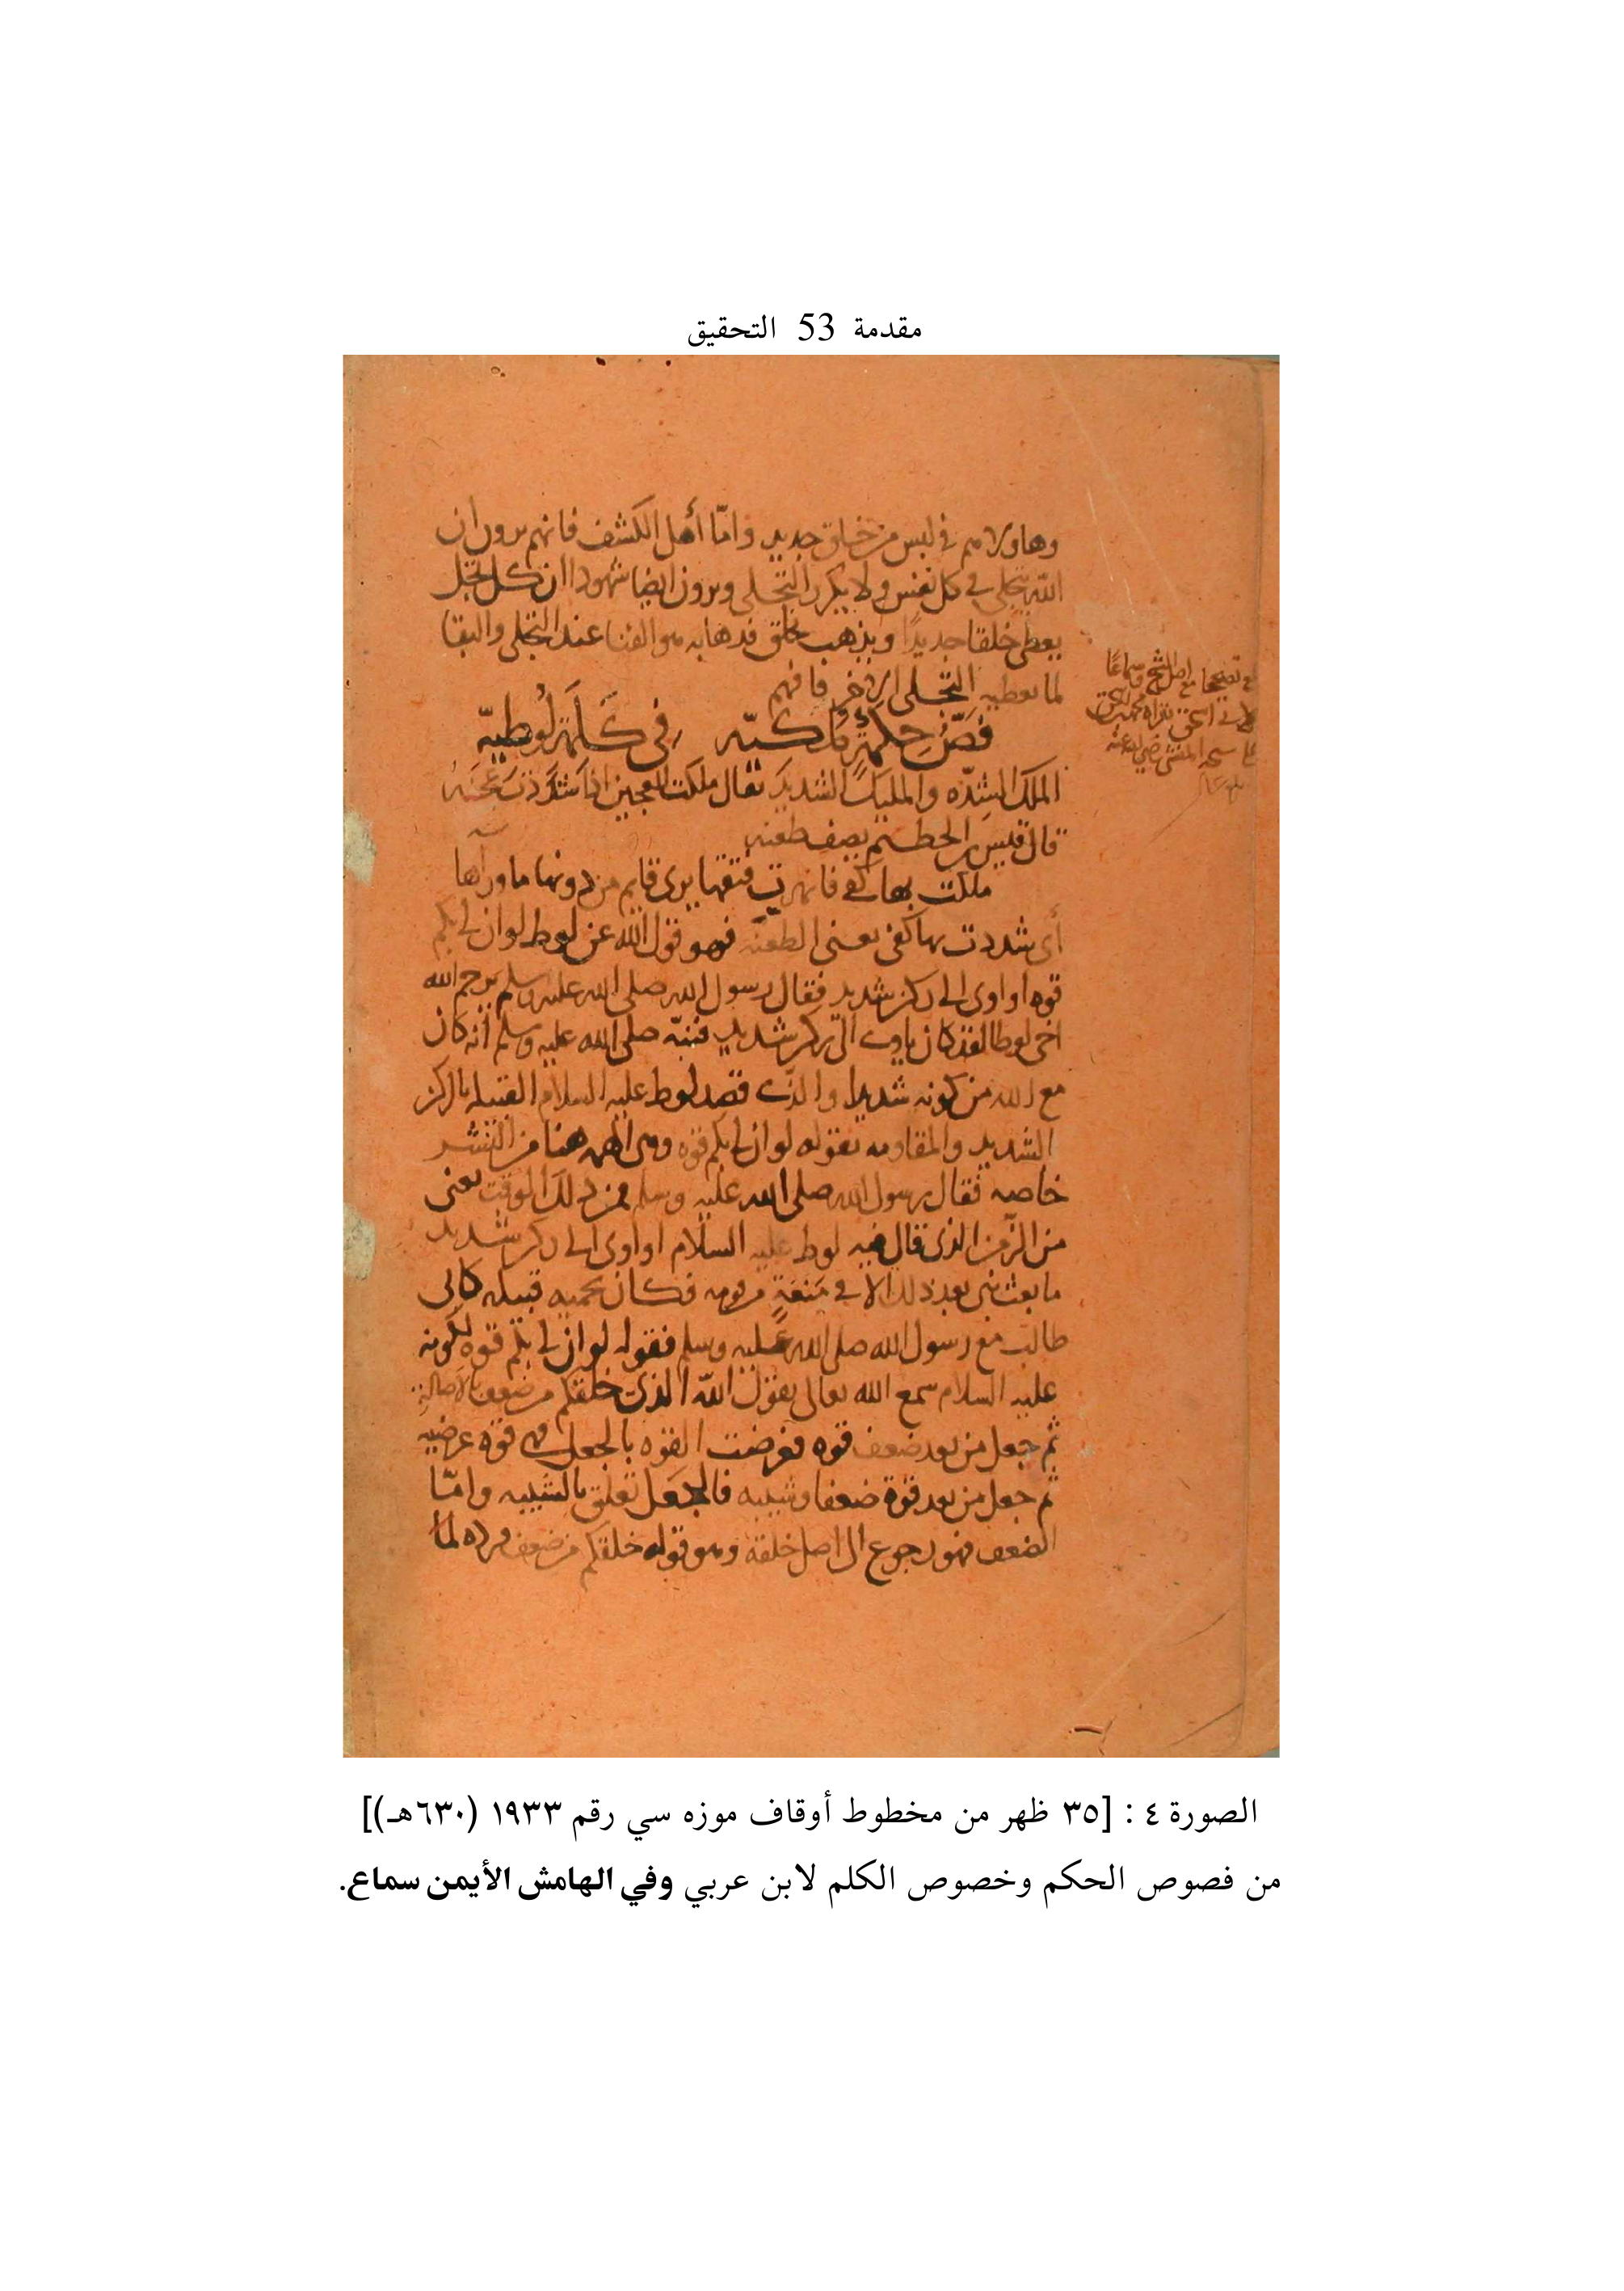 مقدمة 53 التحقيق
وهاولاء هم في لبس من خلق جديد وامّا أهل الكشف فانهم يرون ان
الله يتجلى في كل نفس ولا يكرر التجلى ويرون ايضا شهودا ان كل تجل
يعطى خلقا جديدًا ويذهب بخلق فذهابه هو الفنا عند التجلى والبقا
لما يعطيه التجلى الاخر فافهم
فصّ حكمة ملكيّه في كلمة لوطيّه
الملك الشدّه والمليك الشديد يقال ملكت العجين اذا شددت عجنه
قال قيس بن الحطيم يصف طعنه
ملكت بها كفى فانهرت فتقها يرى قايم من دونها ما وراها
أى شددت بها كفى يعنى الطعنه فهو قول الله عن لوط لو ان لى بكم
قوه او اوى الى ركن شديد فقال رسول الله صلى الله عليه وسلم يرحم الله
اخى لوطا لقد كان ياوى الى ركن شديد فنبّه صلى الله عليه وسلم أنه كان
مع الله من كونه شديدا والذى قصد لوط عليه السلام القبيله بالركن
الشديد والمقاومه بقوله لو ان لى بكم قوه وهى الهمه هنا من البشر
خاصه فقال رسول الله صلى الله عليه وسلم فمن ذلك الوقت يعنى
من الزمن الذى قال فيه لوط عليه السلام او اوى الى ركن شديد
ما بعث نبى بعد ذلك الا في منعة من قومه فكان يحميه قبيله كابى
طالب مع رسول الله صلى الله عليه وسلم فقوله لو ان لى بكم قوه لكونه
عليه السلام سمع الله تعالى يقول الله الذى خلقكم من ضعف بالاصالة
ثم جعل من بعد ضعف قوه فعرضت القوه بالجعل فهى قوه عرضيه
ثم جعل من بعد قوة ضعفا وشيبه فالجعل تعلق بالشيبه وامّا
الضعف فهو رجوع الى اصل خلقه وهو قوله خلقكم من ضعف فرده لما
الصورة ٤ : [٣٥ ظهر من مخطوط أوقاف موزه سي رقم ١٩٣٣ (٦٣٠هـ)]
من فصوص الحكم وخصوص الكلم لابن عربي وفي الهامش الأيمن سماع.